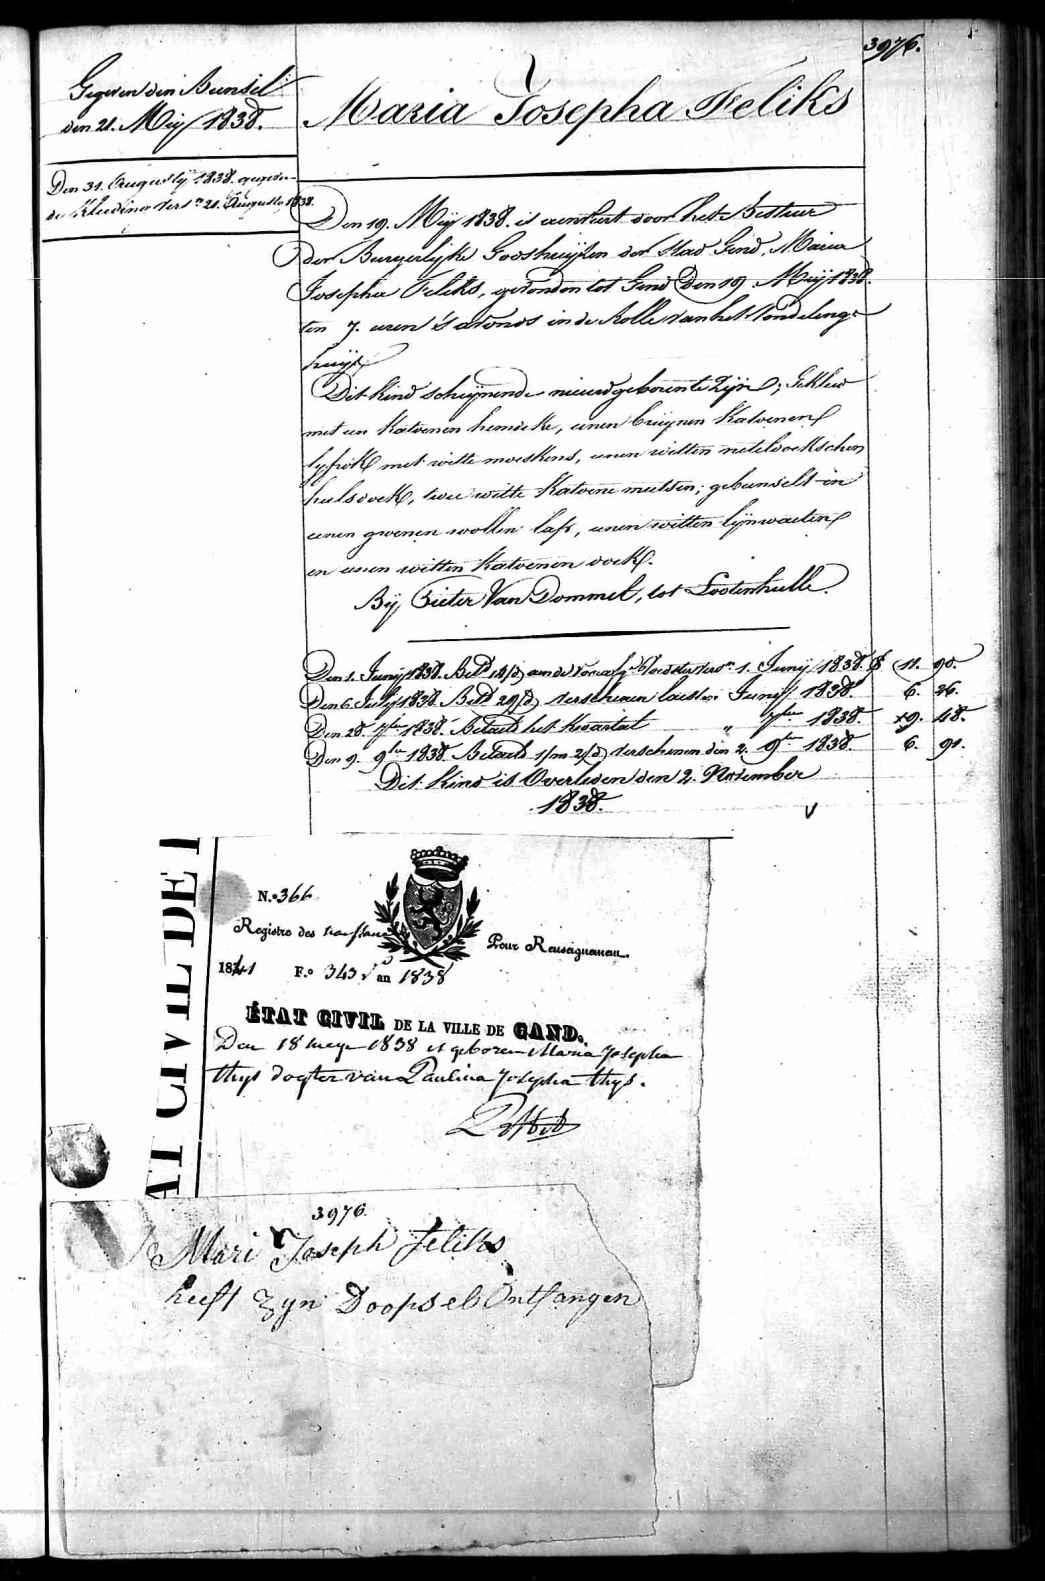 3976.
Gegeven den Bunsel
den 21. Meÿ 1838.
Den 31. Augustÿ 1838. gegeven
de Kleeding vers.n 21. Augusto 1838.
Maria Josepha Feliks
Den 19. Meÿ 1838. is aenveert door het Bestuer
der Burgerlÿke Godshuÿsen der Stad Gend, Maria
Josepha Feliks, gevonden tot Gend Den 19. Meÿ 1838.
ten 7. uren 's avonds in de Rolle van het Vondeling-
huÿs.
Dit kind scheÿnende nieuwgeboren te zÿn; Gekleed
met een Katoenen hemdeke, eenen bruÿnen Katoenen
lÿfrok met witte moeskens, eenen witten neteldoekschen
halsdoek, twee witte Katoene mutsen; gebunselt in
eenen groenen wollen lap, eenen witten lÿnwaeten
en eenen witten Katoenen doek.
Bÿ Pieter Van Dommel, tot Lootenhulle.
Den 1. Junÿ 1838. Bet.d 1. Junÿ 1838. ƒ 11. 90.
Den 6. Julÿ 1838. Bet.d 29/d verschenen laesten Junÿ 1838. 6. 26.
Den 28. 7ber 1838. Betaeld het kwartal " 7ber 1838. 19. 48.
Den 9. 9ber 1838. Betaeld 1/m 2/d verschenen den 2. 9ber 1838. 6. 91.
Dit kind is Overleden den 2. November
1838.
N.o 366
Registre des naissances
Pour Renseignemen.
1841 F.o 343 v an 1838
ÉTAT CIVIL DE LA VILLE DE GAND.
Den 18 meye 1838 is geboren Maria Josepha
thys dogter van Paulina Josepha thys.
3976.
Mari Joseph feliks
heeft zyn Doopsel Ontfangen